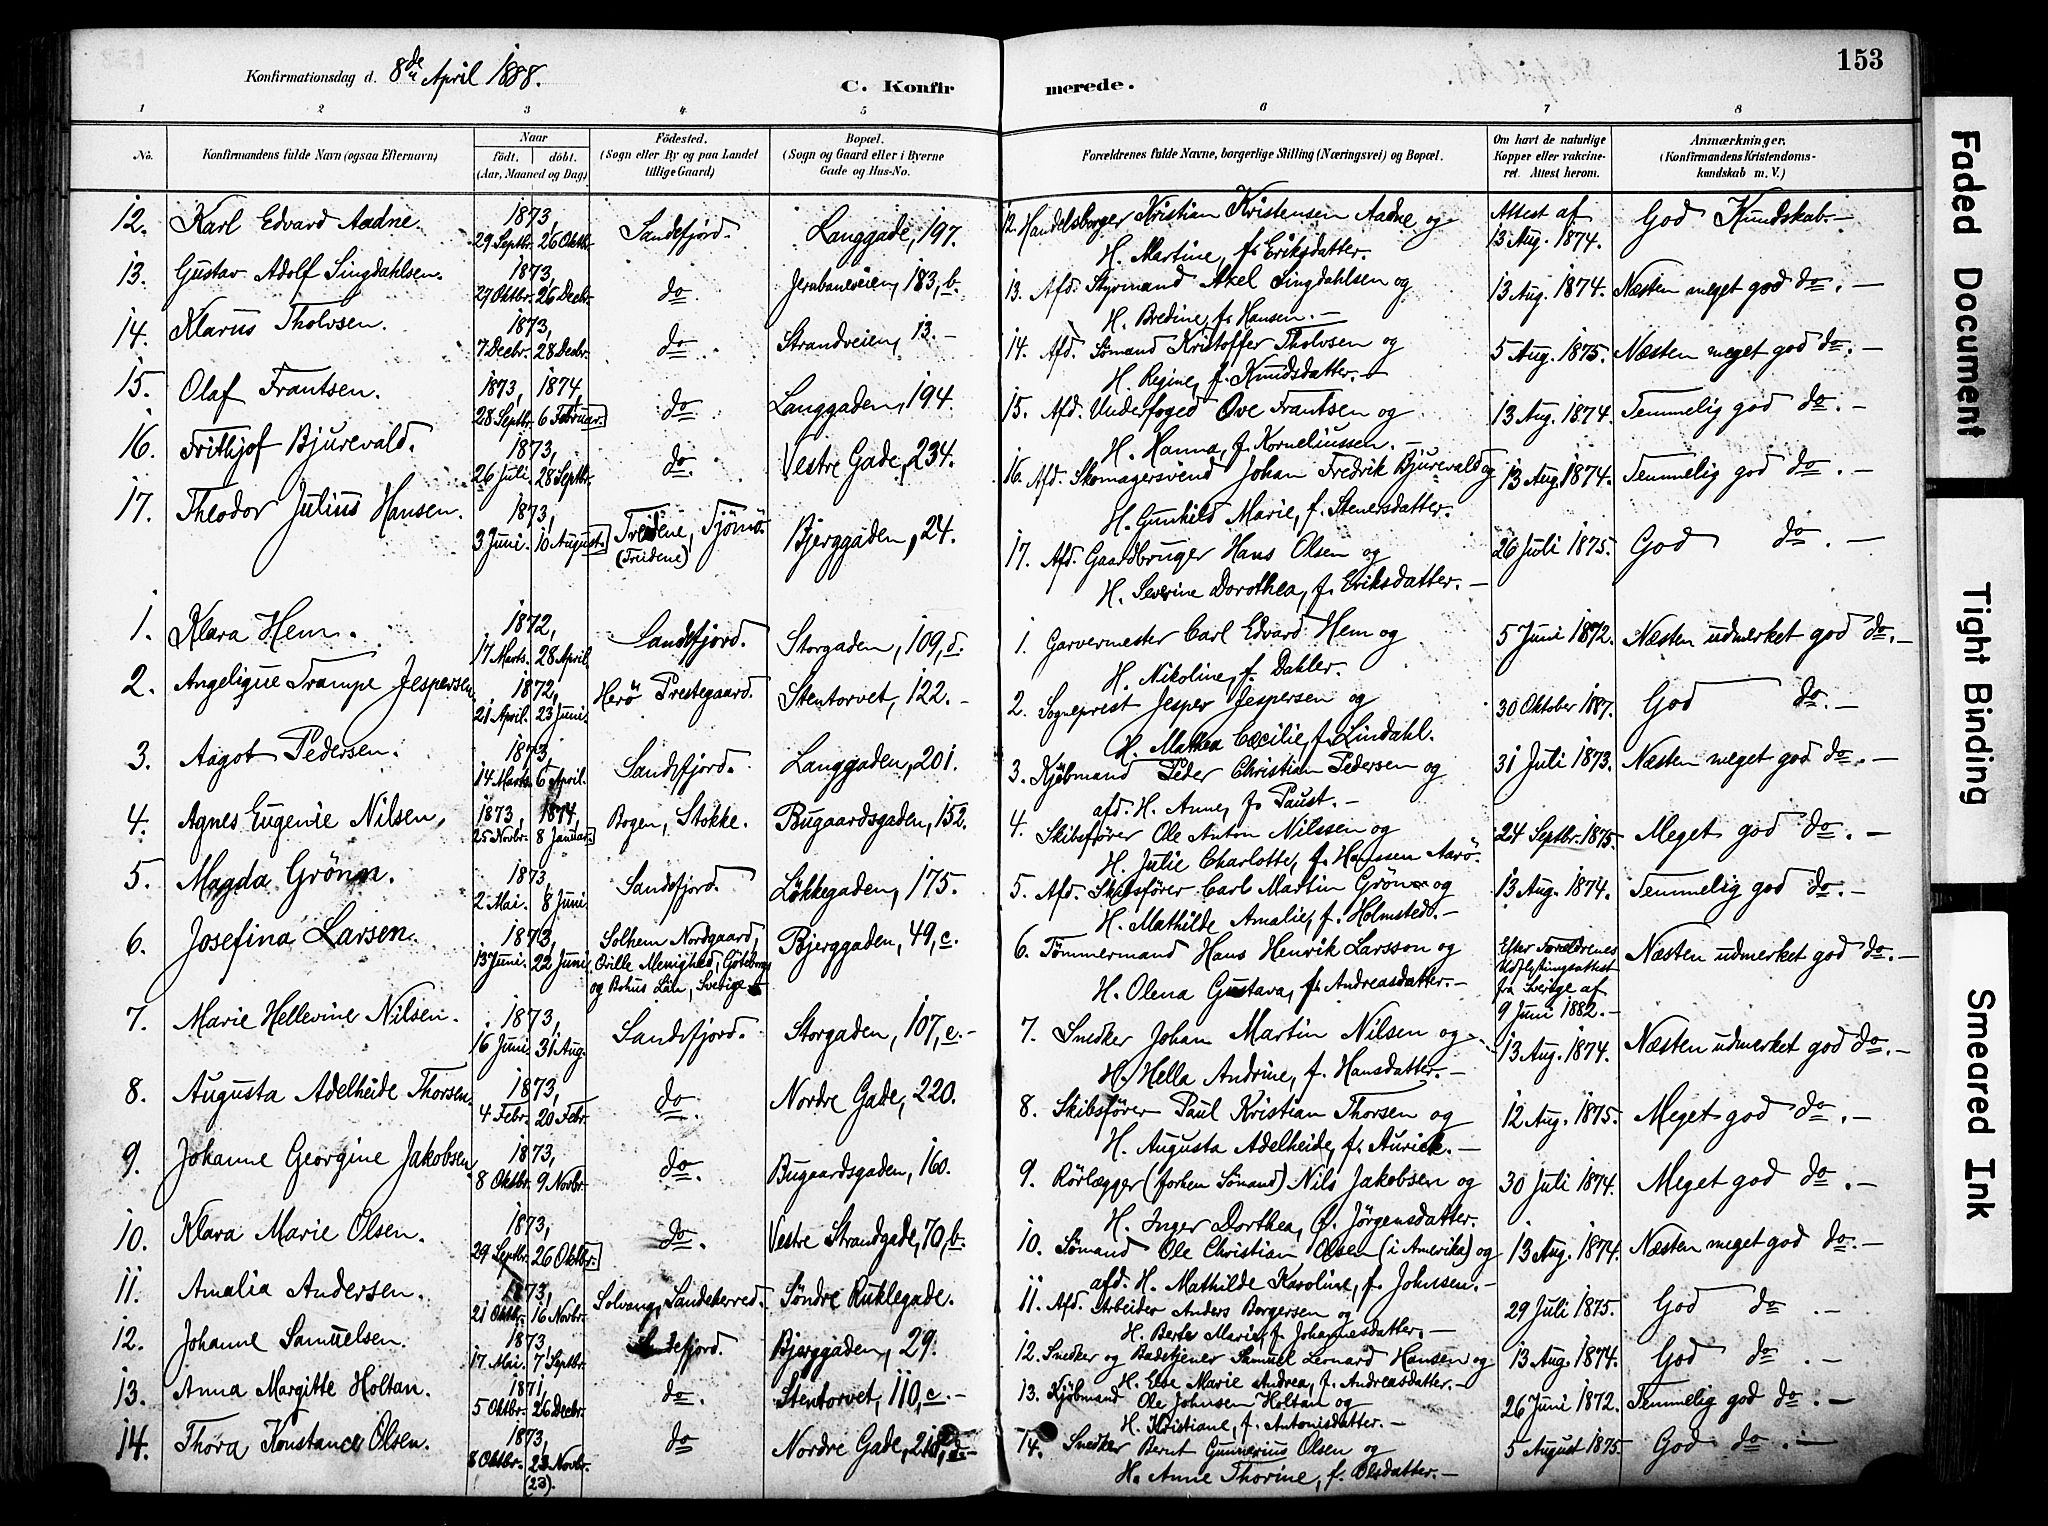 153
Konfirmationsdag d. 8de April 1888.
C. Konfirmerede.
1 2 3 4 5 6 7 8
No. | Konfirmandens fulde Navn (ogsaa Efternavn) | Naar födt. döbt. (Aar, Maaned og Dag) | Födested. (Sogn eller By og paa Landet tillige Gaard) | Bopæl. (Sogn og Gaard eller i Byerne Gade og Hus-No. | Forældrenes fulde Navne, borgerlige Stilling (Næringsvei) og Bopæl. | Om havt de naturlige Kopper eller vakcineret. Attest herom. | Anmærkninger. (Konfirmandens Kristendomskundskab m. V.)
12. Karl Edvard Aadne. 1873, 29 Septbr. 26 Oktbr. Sandefjord. Langgade, 197. 12. Handelsborger Kristian Kristensen Aadne og Attest af 13 Aug. 1874. God Kundskab.—
H. Martine, f. Eriksdatter.
13. Gustav Adolf Singdahlsen. 1873, 27 Oktbr. 26 Decbr. do Jernbaneveien, 183, b. 13. Afd. Styrmand Axel Singdahlsen og 13 Aug. 1874. Næsten meget god do.—
H. Bredine, f. Hansen.—
14. Klarus Tholvsen. 1873, 7 Decbr. 28 Decbr. do Strandveien, 13.— 14. Afd. Sømand Kristoffer Tholvsen og 5 Aug. 1875. Næsten meget god do.—
H. Regine, f. Knudsdatter.—
15. Olaf Frantsen. 1873, 28 Septbr. 1874 6 Februar. do Langgaden, 194. 15. Afd. Underfoged Ove Frantsen og 13 Aug. 1874. Temmelig god do.—
H. Hanna, f. Korneliussen.—
16. Frithjof Bjurevald. 1873, 26 Juli 28 Septbr. do Vestre Gade, 234. 16. Afd. Skomagersvend Johan Fredrik Bjurevald og 13 Aug. 1874. Temmelig god do.—
H. Gunhild Marie, f. Stenersdatter.
17. Theodor Julius Hansen. 1873, 3 Juni. 10 August. Tredene, Tjömö. (Treidene) Bjerggaden, 24. 17. Afd. Gaardbruger Hans Olsen og 26 Juli 1875. God do.—
H. Severine Dorothea, f. Eriksdatter.—
1. Klara Hem. 1872, 17 Marts. 28 April. Sandefjord. Storgaden, 109, d. 1. Garvermester Carl Edvard Hem og 5 Juni 1872. Næsten udmerket god do.—
H. Nikoline, f. Dahler.
2. Angelique Trampe Jespersen. 1872, 21 April. 23 Juni. Herö Prestegaard. Stentorvet, 122.— 2. Sogneprest Jesper Jespersen og 30 Oktober 1887. God do.—
H. Mathea Cæcilie, f. Lindahl.
3. Aagot Pedersen. 1873 14 Marts. 6 April. Sandefjord. Langgaden, 201. 3. Kjøbmand Peder Christian Pedersen og 31 Juli 1873. Næsten meget god do.—
afd. H. Anne, f. Paust.—
4. Agnes Eugenie Nilsen, 1873, 25 Novbr. 1874, 8 Januar. Bogen, Stokke. Bugaardsgaden, 152. 4. Skibsfører Ole Anton Nilssen og 24 Septbr. 1875. Meget god do.—
H. Julie Charlotte, f. Hanssen Aarö.
5. Magda Grönn. 1873, 2 Mai. 8 Juni Sandefjord. Løkkegaden, 175. 5. Afd. Skibsfører Carl Martin Grönn og 13 Aug. 1874. Temmelig god do.—
H. Mathilde Amalie, f. Holmsted.—
6. Josefina Larsen. 1873, 13 Juni. 22 Juni. Solhem Nordgaard, Qville Menighed, Göteborgs og Bohus Län, Sverige Bjerggaden, 49, c. 6. Tømmermand Hans Henrik Larsson og Efter Forældrenes Udflytningsattest fra Sverige af 9 Juni 1882.— Næsten udmerket god do.—
H. Olena Gustava, f. Andreasdatter.—
7. Marie Hellevine Nilsen. 1873, 16 Juni. 31 Aug. Sandefjord. Storgaden, 107, e.— 7. Snedker Johan Martin Nilsen og 13 Aug. 1874. Næsten udmerket god do.—
H. Hella Andrine, f. Hansdatter.—
8. Augusta Adelheide Thorsen. 1873, 4 Febr. 20 Febr. do Nordre Gade, 220. 8. Skibsfører Paul Kristian Thorsen og 12 Aug. 1875. Meget god do.—
H. Augusta Adelheide, f. Aurick.—
9. Johanne Georgine Jakobsen 1873, 8 Oktbr. 9 Novbr. do. Bugaardsgaden, 160. 9. Rörlægger (forhen Sömand) Nils Jakobsen og 30 Juli 1874. Meget god do.—
H. Inger Dorthea, f. Jörgensdatter.
10. Klara Marie Olsen. 1873, 29 Septbr. 26 Oktbr. do. Vestre Strandgade, 70, b. 10. Sømand Ole Christian Olsen (i Amerika) og 13 Aug. 1874. Næsten meget god do.—
afd. H. Mathilde Karoline, f. Johnsen.—
11. Amalia Andersen. 1873, 21 Oktbr. 16 Novbr. Solvang, Sandeherred. Söndre Ruklegade. 11. Afd. Arbeider Anders Borgersen og 29 Juli 1875. God do.—
H. Berte Marie, f. Johannesdatter.—
12. Johanne Samuelsen. 1873 17 Mai. 7 Septbr. Sandefjord. Bjerggaden, 29. 12. Snedker og Badetjener Samuel Leonard Hansen og 13 Aug. 1874. God do.—
H. Else Marie Andrea, f. Andreasdatter.—
13. Anna Margitte Holtan. 1871, 5 Oktbr. 26 Decbr. do. Stentorvet, 110, c.— 13. Kjøbmand Ole Johnsen Holtan og 26 Juni 1872. Temmelig god do.—
H. Kristiane, f. Antonisdatter.—
14. Thora Konstance Olsen. 1873, 8 Oktbr. 23 Novbr. (23). do Nordre Gade, 14. Snedker Bernt Gunnerius Olsen og 5 August 1875. God do.—
H. Anne Thorine, f. Olsdatter.—
Faded Document
Tight Binding
Smeared Ink